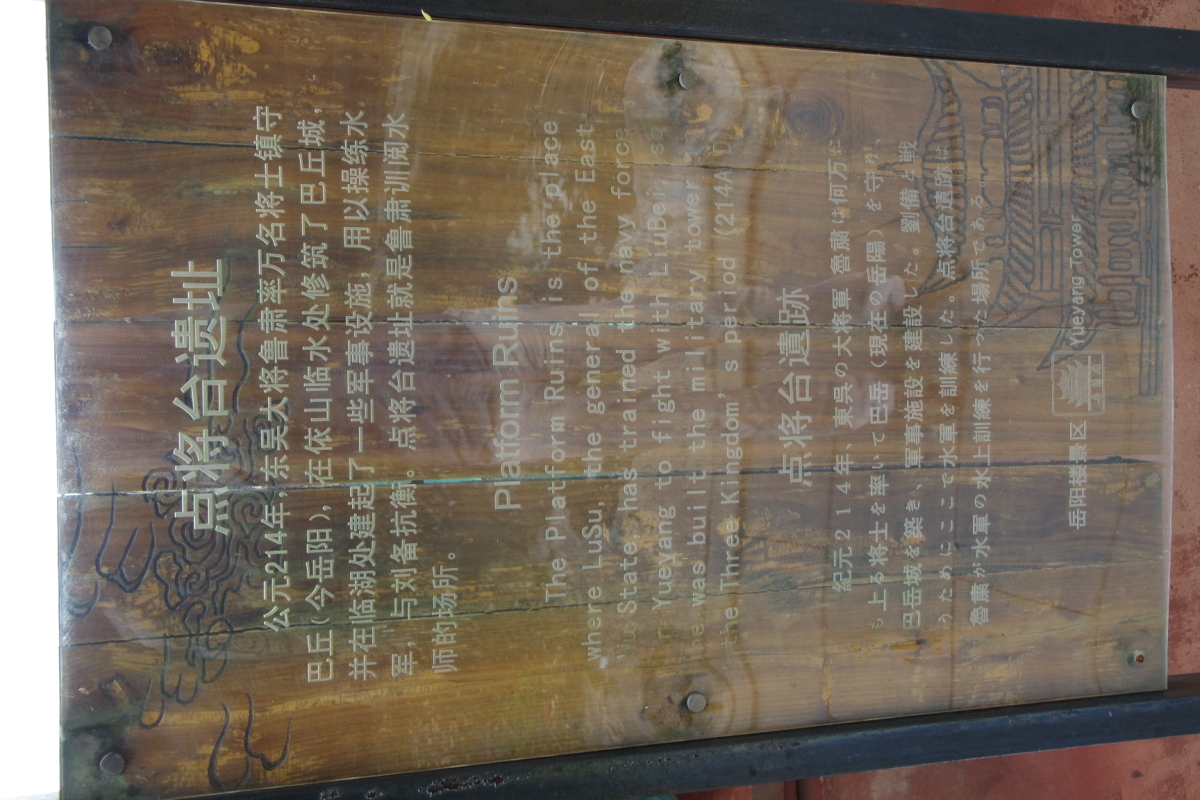 点将台遗址
公元214年,东吴大将鲁肃率万名将士镇守
巴丘(今岳阳),在依山临水处修筑了巴丘城,
并在临湖处建起了一些军事设施,用以操练水
军,与刘备抗衡。点将台遗址就是鲁肃训阅水
师的场所。
Platform Ruins
The Platform Ruins is the place
where LuSu, the general of the East
Wu State, has trained the navy force
in Yueyang to fight with LiuBei, so
he was built the military tower
the Three Kingdom's period (214A.D)
点将台遺跡
紀元214年、東呉の大将軍 魯粛は何万に
も上る将士を率いて巴岳(現在の岳陽)を守り、
巴岳城を築き、軍事施設を建設した。劉備と戦
うためにここで水軍を訓練した。点将台遺跡は
魯粛が水軍の水上訓練を行った場所である
岳阳楼景区
Yueyang Tower